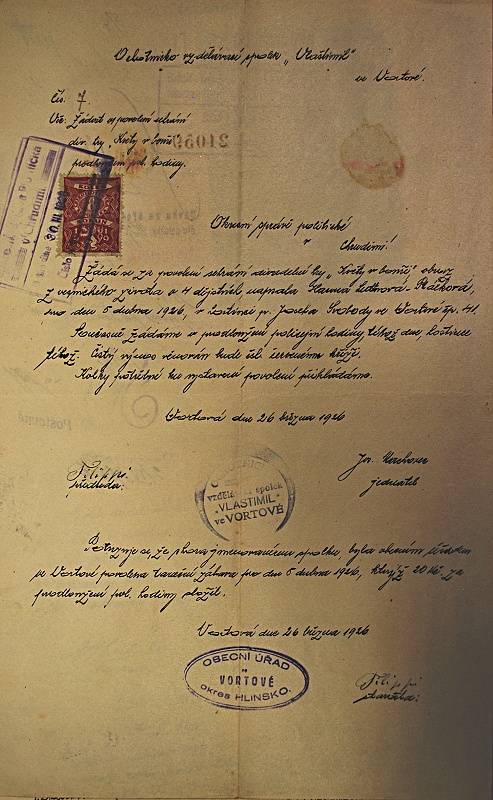 Ochotnicko vzdělávací spolek „Vlastimil"
ve Vortové.
Čís. 7.
Věc: Žádost o povolení sehrání
div. hry „Květy v bouři"
prodloužení pol. hodiny.
21099
Okresní správě politické
v Chrudimi!
Žádá se za povolení sehrání divadelní hry „Květy v bouři", obraz
z vesnického života o 4 dějstvích, napsala
dne 5 dubna 1926, v hostinci p. Josefa Svobody ve Vortové čp. 41.
Současně žádáme o prodloužení policejní hodiny, téhož dne, hostince
téhož. Čistý výnos věnován bude čsl. červenému kříži.
Kolky potřebné ku vystavení povolení přikládáme.
Vortová dne 26 března 1926
Filippi
předseda:
Jos.
jednatel
vzdělávací spolek
„VLASTIMIL"
ve VORTOVÉ
Potvrzuje se, že shora jmenovanému spolku, byla obecním úřadem
ve Vortové povolena taneční zábava pro den 5 dubna 1926, když 20 Kč za
prodloužení pol. hodiny složil.
Vortová dne 26 března 1926
OBECNÍ ÚŘAD
VORTOVÉ
okres HLINSKO.
Filippi
starosta: